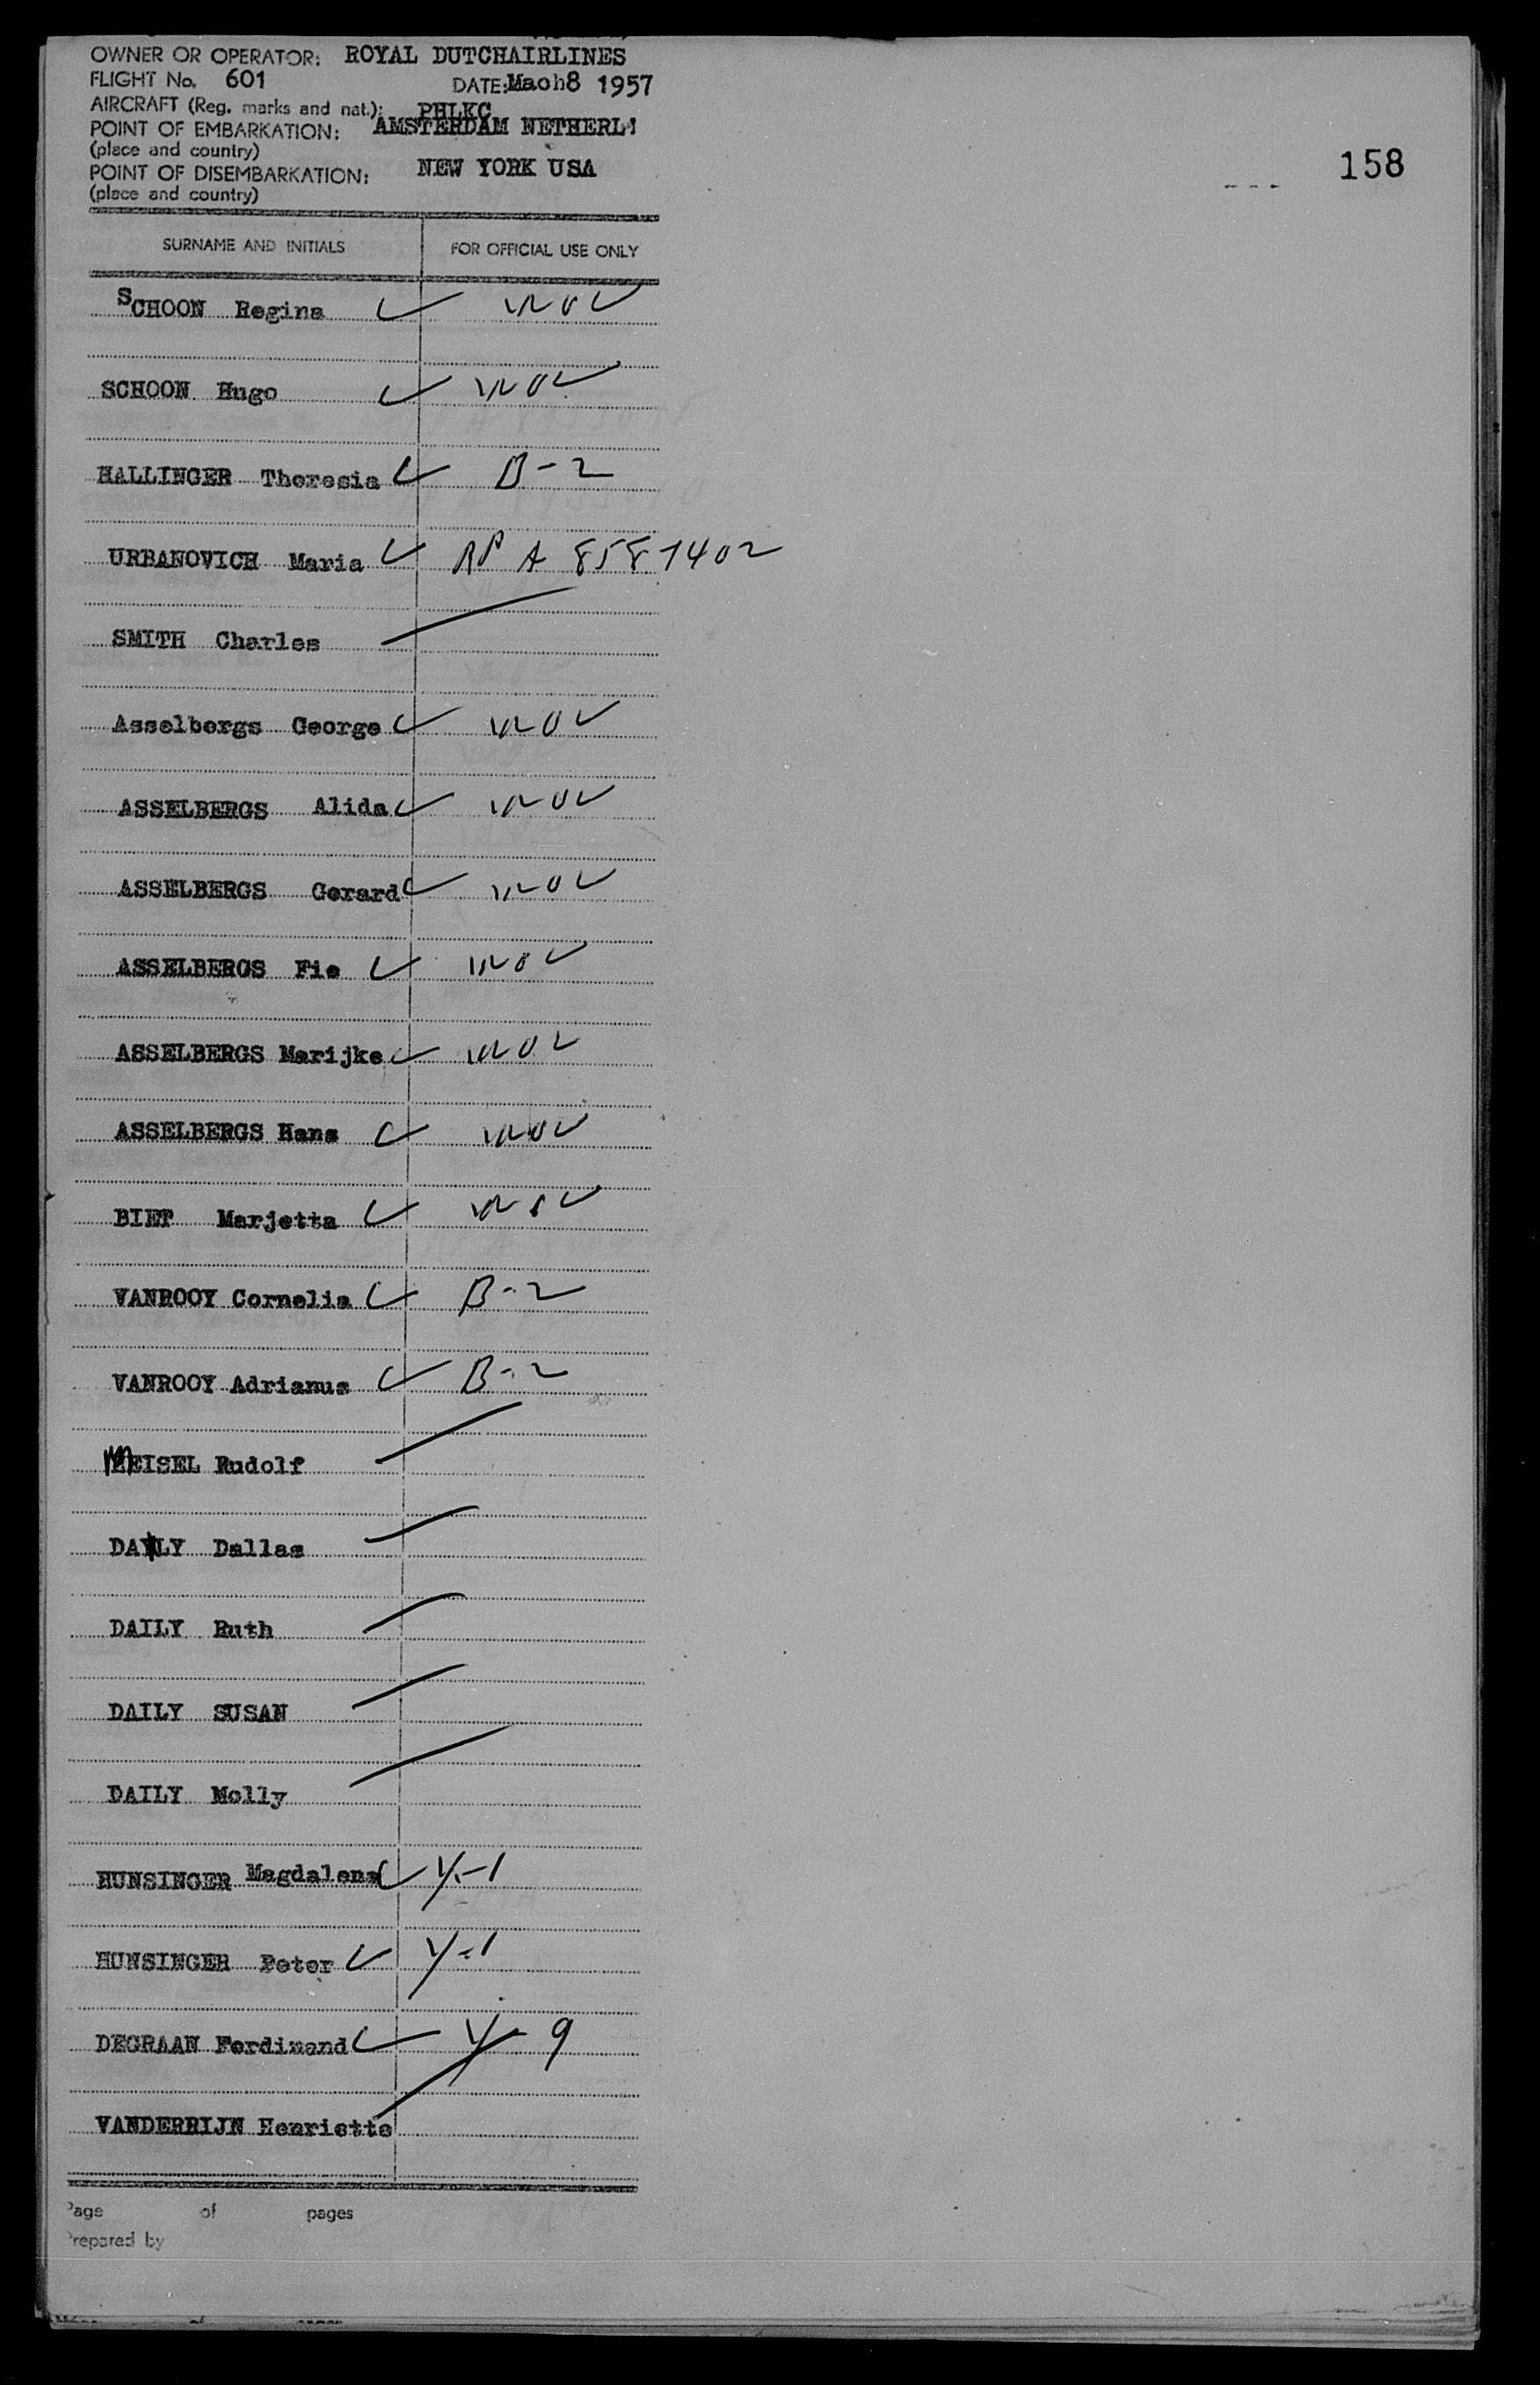 OWNER OR OPERATOR: ROYAL DUTCHAIRLINES
FLIGHT No. 601 DATE: Mach8 1957
AIRCRAFT (Reg. marks and nat.): PHLKC
POINT OF EMBARKATION: AMSTERDAM NETHERL
(place and country)
POINT OF DISEMBARKATION: NEW YORK USA
(place and country)
158
SURNAME AND INITIALS FOR OFFICIAL USE ONLY
SCHOON Regina
SCHOON Hugo
HALLINGER Theresia B-2
URBANOVICH Maria RP A 8587402
SMITH Charles
Asselbergs George
ASSELBERGS Alida
ASSELBERGS Gerard
ASSELBERGS Fie
ASSELBERGS Marijke
ASSELBERGS Hans
BIET Marjetta
VANROOY Cornelia B-2
VANROOY Adrianus B-2
MEISEL Rudolf
DAILY Dallas
DAILY Ruth
DAILY SUSAN
DAILY Molly
HUNSINGER Magdalena Y-1
HUNSINGER Peter Y-1
DEGRAAN Ferdinand Y-9
VANDERRIJN Henriette
Page of pages
Prepared by